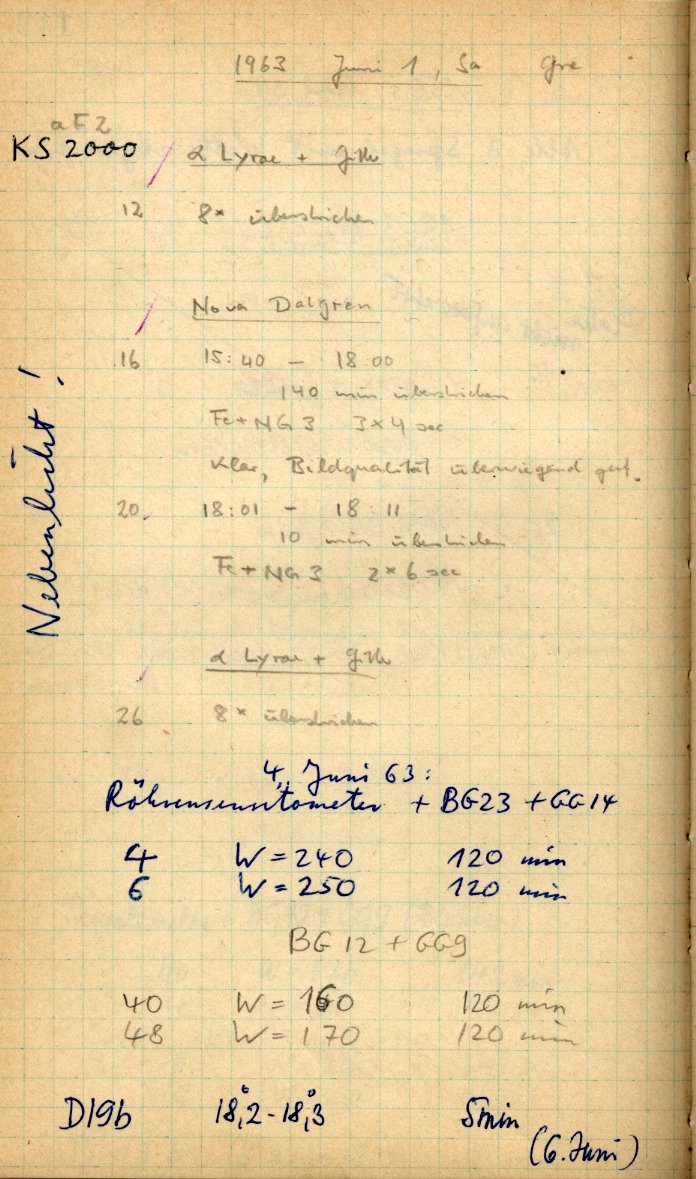 1963 Juni 1, Sa Gre
aF2
KS 2000
α Lyrae + Gitter
12 8× überstrichen
Nova Dalgren
16 15:40 – 18:00
140 min überstrichen
Fe + NG 3 3×4 sec
Klar, Bildqualität überwiegend gut.
20 18:01 – 18:11
10 min überstrichen
Fe + NG 3 2×6 sec
Nebenlicht!
α Lyrae + Gitter
26 8× überstrichen
4. Juni 63:
Röhrensensitometer + BG23 + GG14
4 W = 240 120 min
6 W = 250 120 min
BG 12 + GG9
40 W = 160 120 min
48 W = 170 120 min
D19b 18°,2 - 18°,3 5min
(6. Juni)